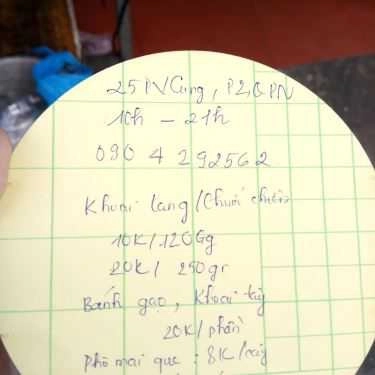 25 PV Cung, P2, Q PN
10h – 21h
090 4 292562
Khoai lang / Chuối chiên
10K / 120Gg
20K / 250gr
Bánh gạo, Khoai tây
20K/phần
Phô mai que : 8K/cây